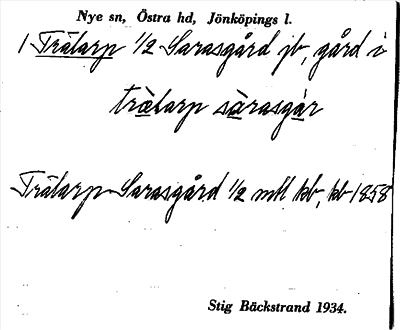 Nye sn, Östra hd, Jönköpings l.
1 Trälarp 1/2 Sarasgård jb, gård i
trälarp sàrasgàr
Trälarp Sarasgård 1/2 mtl kb, kb 1858
Stig Bäckstrand 1934.